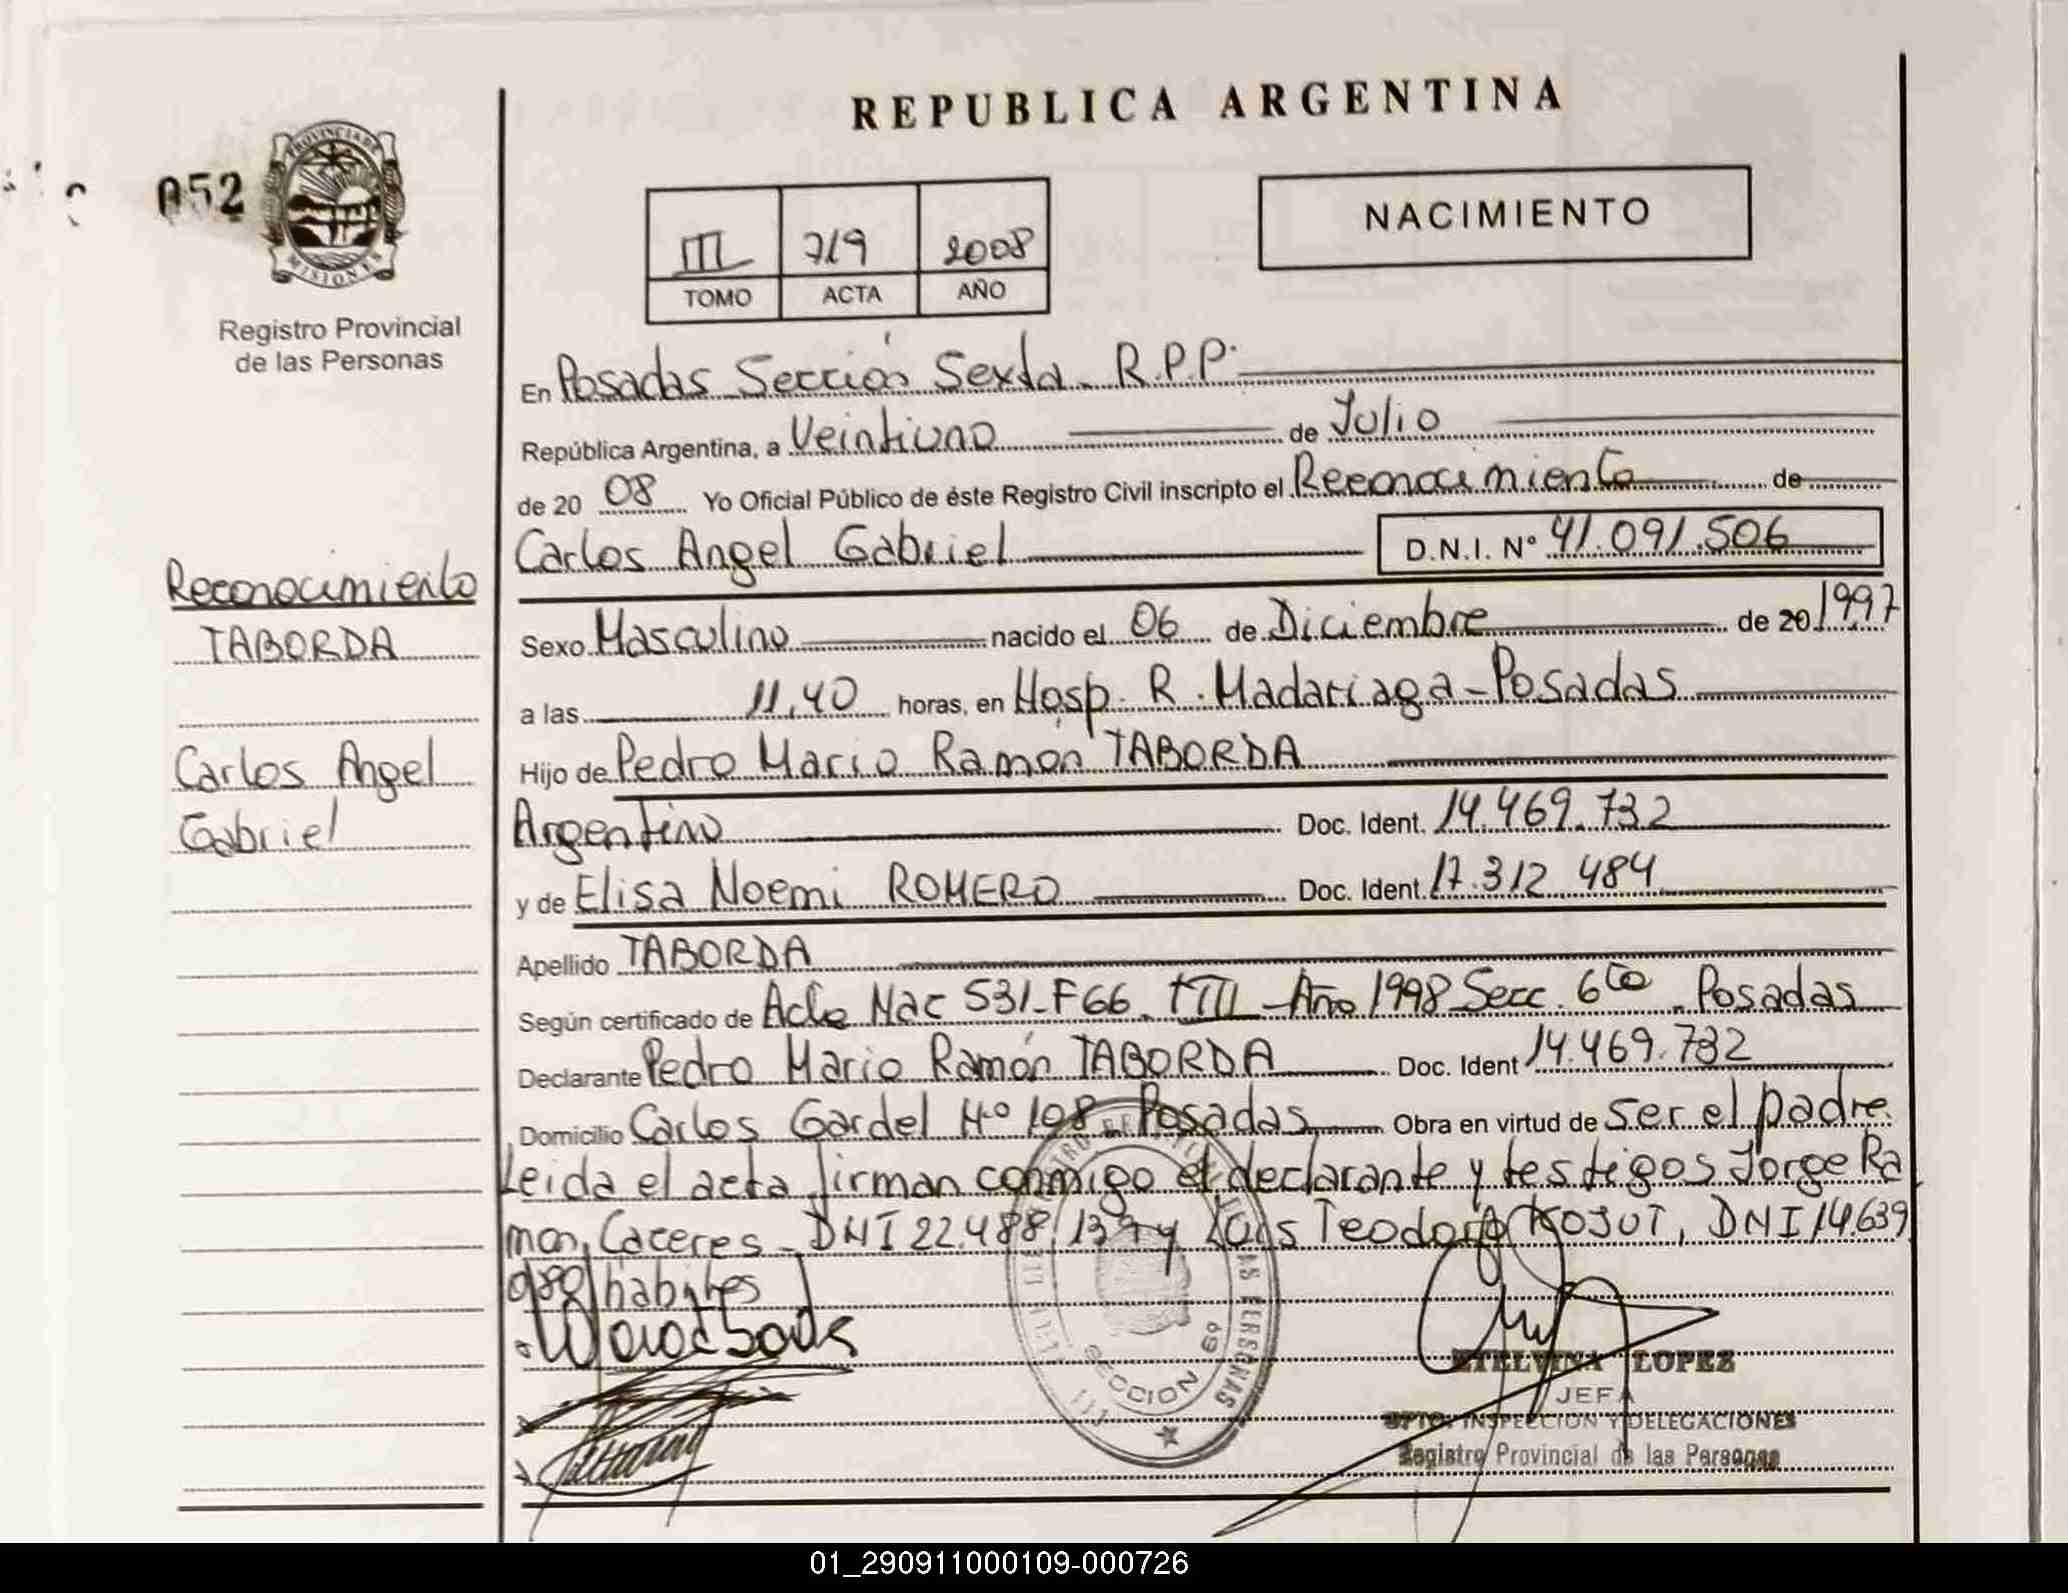 REPUBLICA ARGENTINA
052
PROVINCIA DE
MISIONES
Registro Provincial
de las Personas
III 719 2008
TOMO ACTA AÑO
NACIMIENTO
En Posadas Sección Sexta R.P.P.
República Argentina, a Veintiuno de Julio
de 20 08 Yo Oficial Público de éste Registro Civil inscripto el Reconocimiento de
Carlos Angel Gabriel D.N.I. Nº 41.091.506
Reconocimiento
TABORDA
Carlos Angel
Gabriel
Sexo Masculino nacido el 06 de Diciembre de 20 1997
a las 11,40 horas, en Hosp. R. Madariaga - Posadas
Hijo de Pedro Mario Ramón TABORDA
Argentino Doc. Ident. 14.469.732
y de Elisa Noemi ROMERO Doc. Ident. 17.312.484
Apellido TABORDA
Según certificado de Acta Nac 531-F66 TIII - Año 1998 Secc. 6ta Posadas
Declarante Pedro Mario Ramón TABORDA Doc. Ident 14.469.732
Domicilio Carlos Gardel Nº 108 Posadas Obra en virtud de ser el padre.
Leida el acta firman conmigo el declarante y testigos Jorge Ra
mon Caceres - DNI 22.488.139 y Luis Teodoro KOJUT, DNI 14.639
980 habiles
SECCION 6º
ETELVINA LOPEZ
JEFA
DPTO. INSPECCION Y DELEGACIONES
Registro Provincial de las Personas
01_290911000109-000726